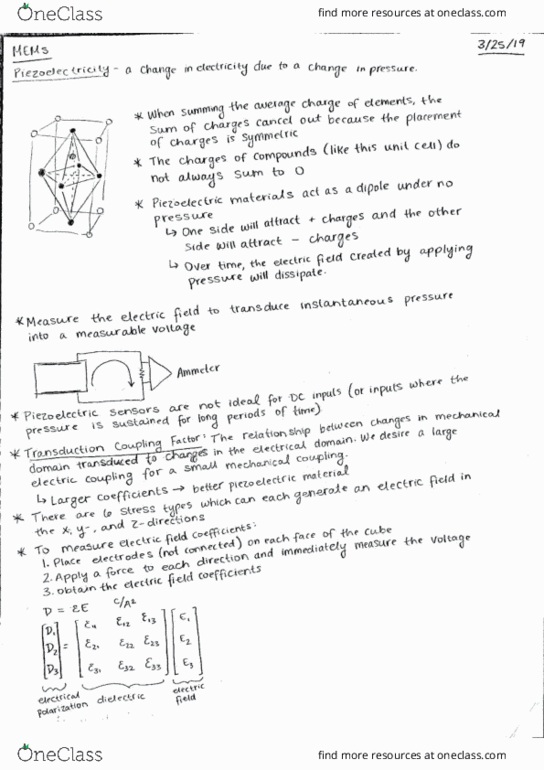 OneClass
find more resources at oneclass.com
MEMS
3/25/19
Piezoelectricity - a change in electricity due to a change in pressure.
* When summing the average charge of elements, the
sum of charges cancel out because the placement
of charges is symmetric
* The charges of compounds (like this unit cell) do
not always sum to 0
* Piezoelectric materials act as a dipole under no
pressure
↳ One side will attract + charges and the other
side will attract - charges
↳ Over time, the electric field created by applying
pressure will dissipate.
* Measure the electric field to transduce instantaneous pressure
into a measurable voltage
Ammeter
* Piezoelectric sensors are not ideal for DC inputs (or inputs where the
pressure is sustained for long periods of time)
* Transduction Coupling Factor: The relationship between changes in mechanical
domain transduced to changes in the electrical domain. We desire a large
electric coupling for a small mechanical coupling.
↳ Larger coefficients → better piezoelectric material
* There are 6 stress types which can each generate an electric field in
the x, y-, and z-directions
* To measure electric field coefficients:
1. Place electrodes (not connected) on each face of the cube
2. Apply a force to each direction and immediately measure the voltage
3. obtain the electric field coefficients
D = εE C/A²
[D₁] = [ε₁₁ ε₁₂ ε₁₃] [E₁]
[D₂] [ε₂₁ ε₂₂ ε₂₃] [E₂]
[D₃] [ε₃₁ ε₃₂ ε₃₃] [E₃]
electrical polarization dielectric electric field
OneClass
find more resources at oneclass.com